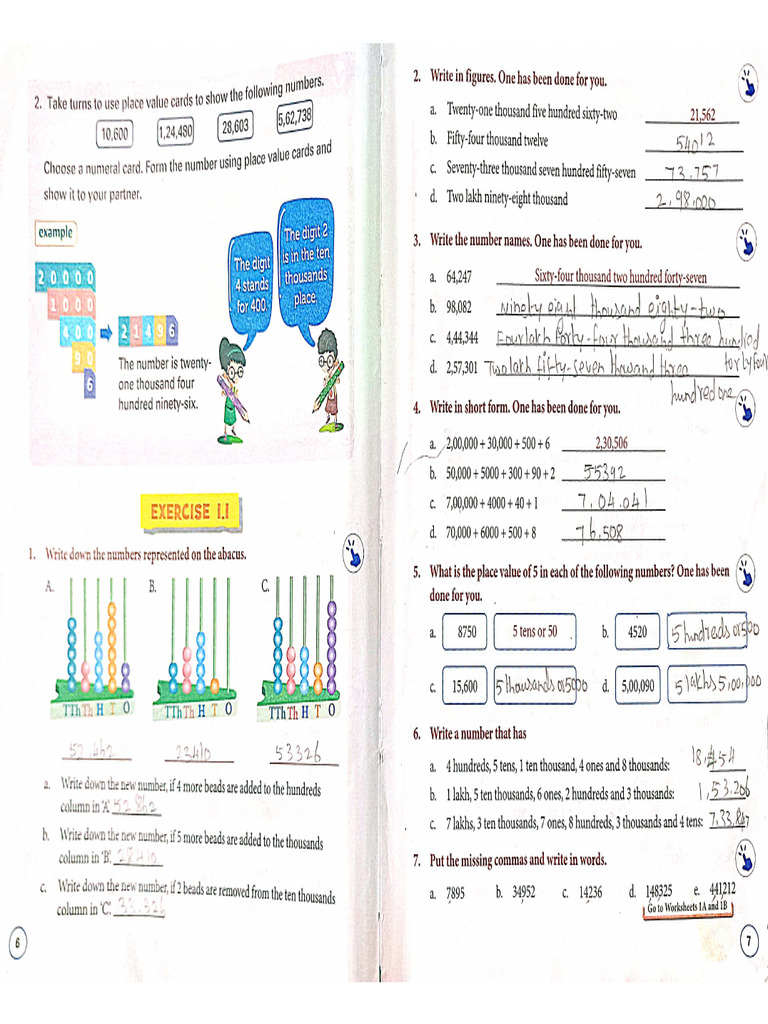 2. Take turns to use place value cards to show the following numbers.
10,600 1,24,480 28,603 5,62,738
Choose a numeral card. Form the number using place value cards and
show it to your partner.
example
2 0 0 0 0
1 0 0 0
4 0 0
9 0
6
2 1 4 9 6
The number is twenty-
one thousand four
hundred ninety-six.
The digit
4 stands
for 400.
The digit 2
is in the ten
thousands
place.
EXERCISE 1.1
1. Write down the numbers represented on the abacus.
A. B. C.
TTh Th H T O TTh Th H T O TTh Th H T O
52,462 23410 53326
a. Write down the new number, if 4 more beads are added to the hundreds
column in 'A'. 52,862
b. Write down the new number, if 5 more beads are added to the thousands
column in 'B'. 28410
c. Write down the new number, if 2 beads are removed from the ten thousands
column in 'C'. 33,326
6
2. Write in figures. One has been done for you.
a. Twenty-one thousand five hundred sixty-two 21,562
b. Fifty-four thousand twelve 54012
c. Seventy-three thousand seven hundred fifty-seven 73,757
d. Two lakh ninety-eight thousand 2,98,000
3. Write the number names. One has been done for you.
a. 64,247 Sixty-four thousand two hundred forty-seven
b. 98,082 Ninety eight thousand eighty-two
c. 4,44,344 Four lakh forty-four thousand three hundred
forty four
d. 2,57,301 Two lakh fifty-seven thousand three
hundred one
4. Write in short form. One has been done for you.
a. 2,00,000 + 30,000 + 500 + 6 2,30,506
b. 50,000 + 5000 + 300 + 90 + 2 55392
c. 7,00,000 + 4000 + 40 + 1 7,04,041
d. 70,000 + 6000 + 500 + 8 76,508
5. What is the place value of 5 in each of the following numbers? One has been
done for you.
a. 8750 5 tens or 50 b. 4520 5 hundreds or 500
c. 15,600 5 thousands or 5000 d. 5,00,090 5 lakhs 5,00,000
6. Write a number that has
a. 4 hundreds, 5 tens, 1 ten thousand, 4 ones and 8 thousands: 18,454
b. 1 lakh, 5 ten thousands, 6 ones, 2 hundreds and 3 thousands: 1,53,206
c. 7 lakhs, 3 ten thousands, 7 ones, 8 hundreds, 3 thousands and 4 tens: 7,33,847
7. Put the missing commas and write in words.
a. 7,895 b. 34,952 c. 14,236 d. 1,48,325 e. 4,41,212
Go to Worksheets 1A and 1B
7